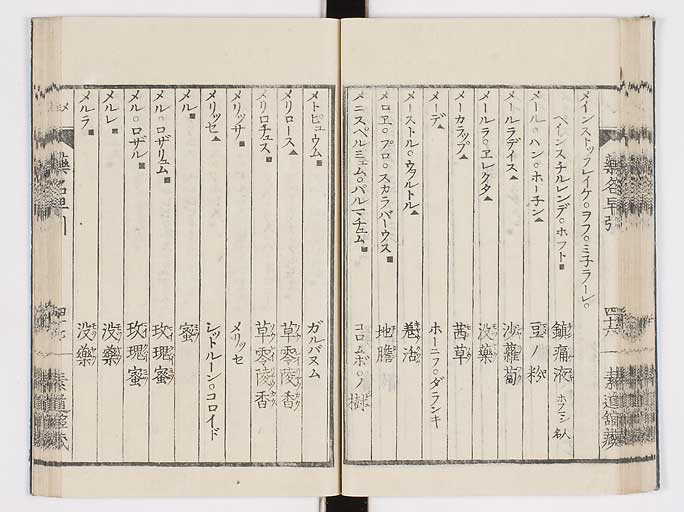 藥名早引
四十六
素道館藏
メインストッフレイケ○ヲフ○ミ子ラーレ○
ペインスチルレンデ○ホフト■ 鎮痛液 ホフマン名人
メール○ハン○ホーチン▲ 豆ノ粉
メールラデイス▲ 沙蘿蔔
メールラ○ヱレクタ▲ 没藥
メーカラップ▲ 茜草
メーデ▲ ホーニフ○ダランキ
メーストル○ウヲルトル▲
メロヱ○プロ○スカラバーウス■ 地膽
メニスペルミュム○パルマチュム■ コロムボ○ノ樹
メトピュウム■ ガルバヌム
メリロース▲ 草零陵香
メリロチュス■ 草零陵香
メリッサ■ メリッセ
メリッセ▲ シットルーン○コロイド
メル■ 蜜
メル○ロザリュム■ 玫瑰蜜
メル○ロザル■ 玫瑰蜜
メルレ■ 没藥
メルラ■ 没藥
藥名早引
素道館藏